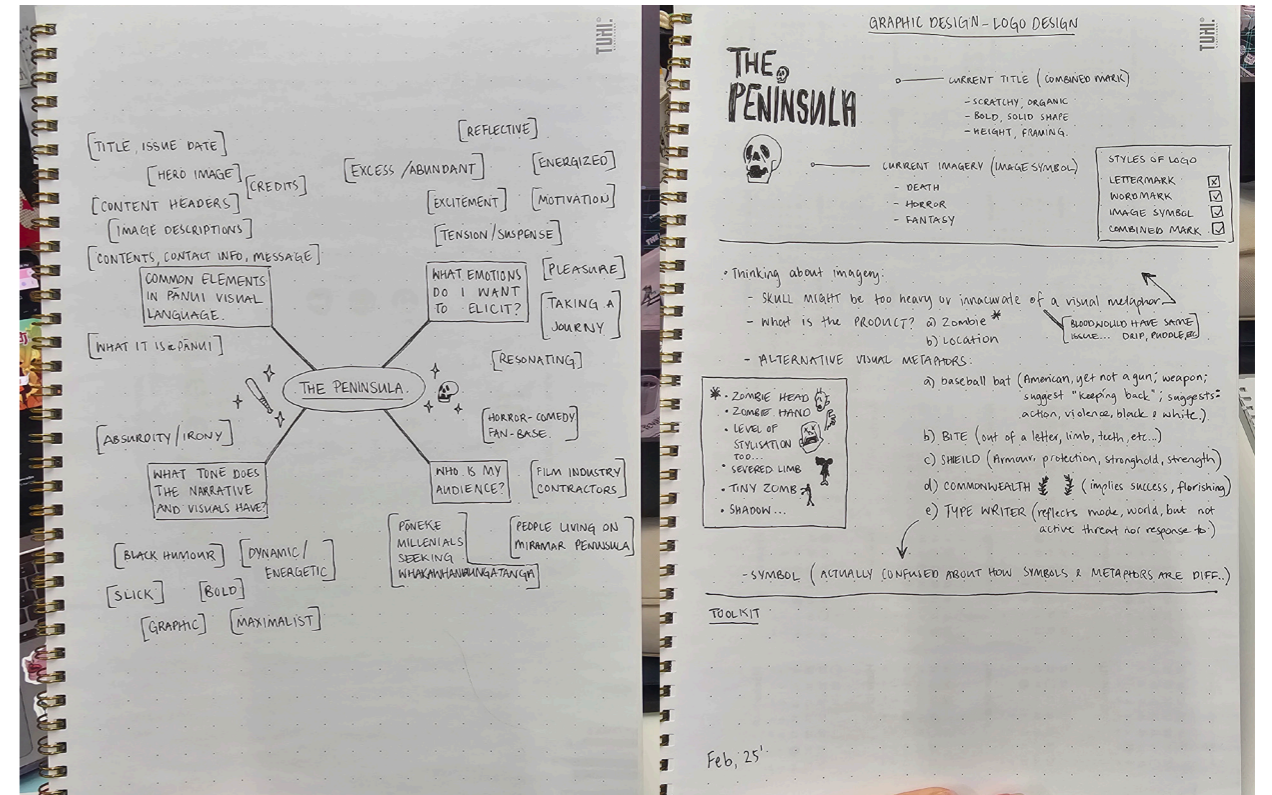 TUHI.
[TITLE, ISSUE DATE]
[HERO IMAGE]
[CREDITS]
[CONTENT HEADERS]
[IMAGE DESCRIPTIONS]
[CONTENTS, CONTACT INFO, MESSAGE]
COMMON ELEMENTS
IN PĀNUI VISUAL
LANGUAGE.
[WHAT IT IS = PĀNUI]
[REFLECTIVE]
[EXCESS /ABUNDANT]
[ENERGIZED]
[EXCITEMENT]
[MOTIVATION]
[TENSION/SUSPENSE]
WHAT EMOTIONS
DO I WANT
TO ELICIT?
[PLEASURE]
[TAKING A
JOURNY]
[RESONATING]
THE PENINSULA.
[ABSURDITY/IRONY]
WHAT TONE DOES
THE NARRATIVE
AND VISUALS HAVE?
[BLACK HUMOUR]
[DYNAMIC/
ENERGETIC]
[SLICK]
[BOLD]
[GRAPHIC]
[MAXIMALIST]
[HORROR-COMEDY
FAN-BASE.]
WHO IS MY
AUDIENCE?
[FILM INDUSTRY
CONTRACTORS]
[PŌNEKE
MILLENIALS
SEEKING
WHAKAWHANAUNGATANGA]
[PEOPLE LIVING ON
MIRAMAR PENINSULA]
GRAPHIC DESIGN - LOGO DESIGN
TUHI.
THE
PENINSULA
CURRENT TITLE (COMBINED MARK)
- SCRATCHY, ORGANIC
- BOLD, SOLID SHAPE
- HEIGHT, FRAMING.
CURRENT IMAGERY (IMAGE SYMBOL)
- DEATH
- HORROR
- FANTASY
STYLES OF LOGO
LETTERMARK
WORDMARK
IMAGE SYMBOL
COMBINED MARK
• Thinking about imagery:
- SKULL MIGHT BE TOO HEAVY or innacurate of a visual metaphor
- What is the PRODUCT? a) Zombie *
b) Location
[BLOOD WOULD HAVE SAME
ISSUE... DRIP, PUDDLE, etc]
- ALTERNATIVE VISUAL METAPHORS:
a) baseball bat (American, yet not a gun; weapon;
suggest "keeping back"; suggests
action, violence, black & white.)
b) BITE (out of a letter, limb, teeth, etc...)
c) SHEILD (Armour, protection, stronghold, strength)
d) COMMONWEALTH (implies success, florishing)
e) TYPE WRITER (reflects mode, world, but not
active threat nor response to.)
* • ZOMBIE HEAD
• ZOMBIE HAND
• LEVEL OF
STYLISATION
TOO...
• SEVERED LIMB
• TINY ZOMB
• SHADOW...
- SYMBOL (ACTUALLY CONFUSED ABOUT HOW SYMBOLS & METAPHORS ARE DIFF..)
TOOLKIT
Feb, 25'